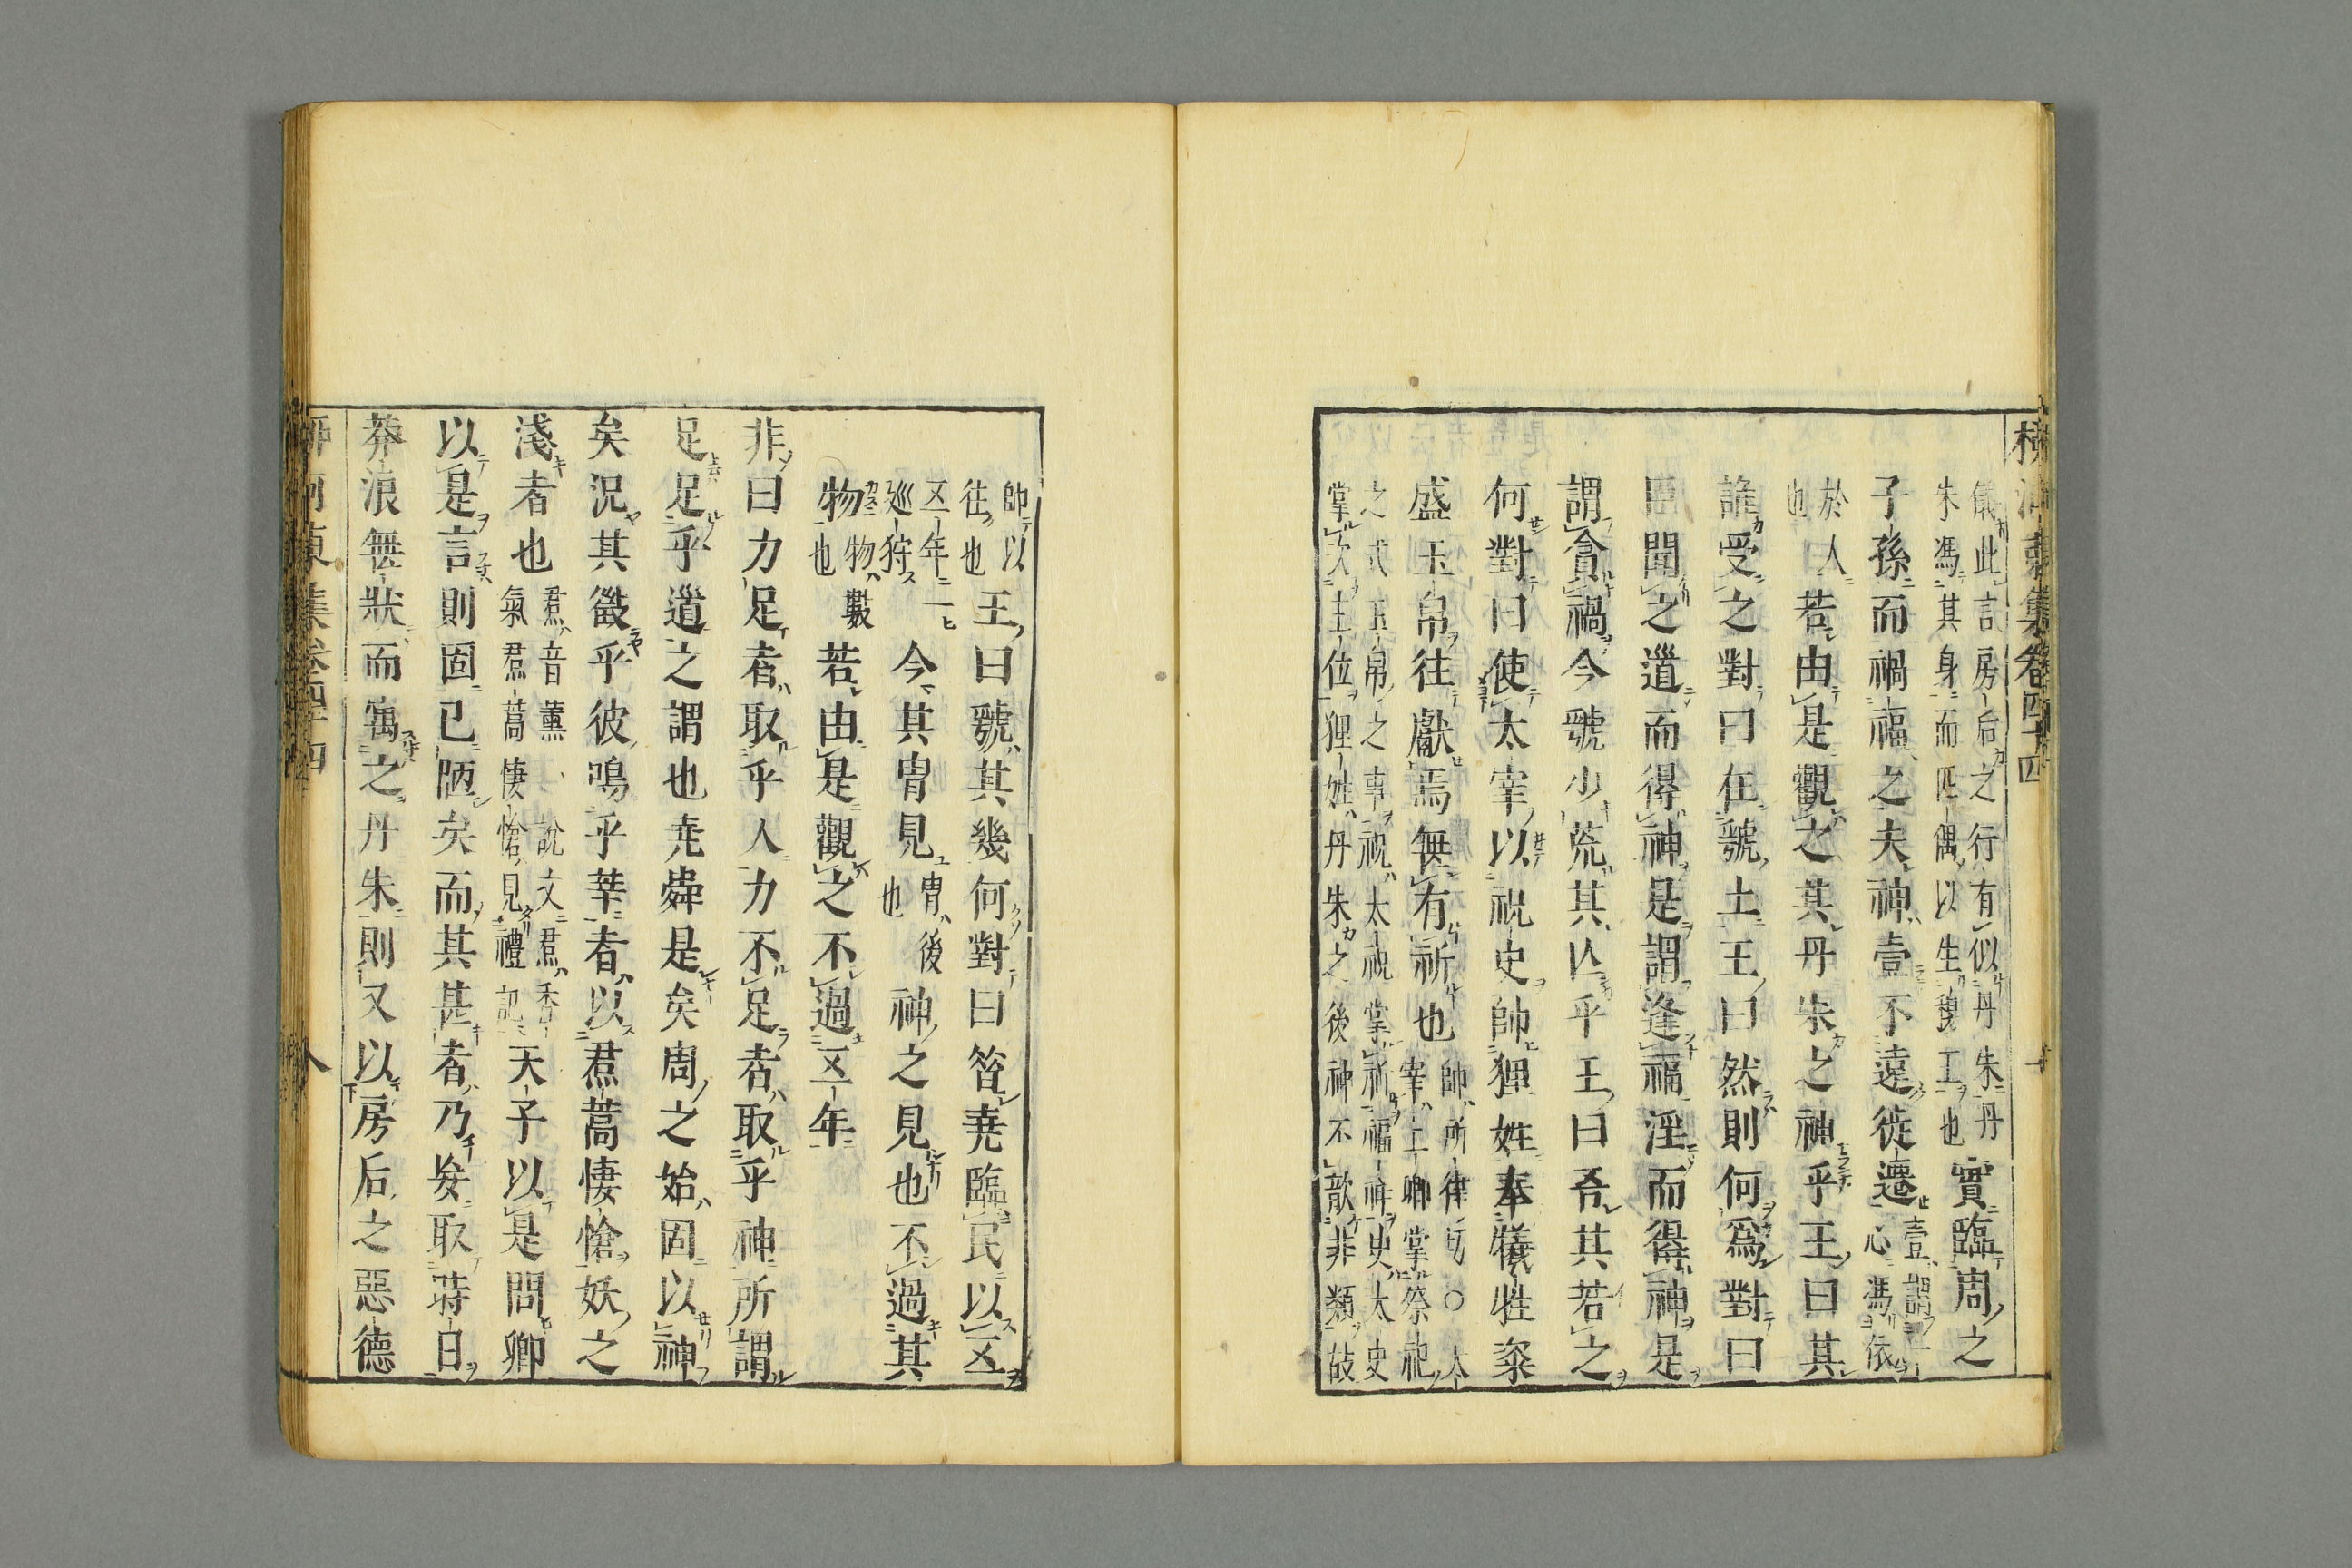 柳河東集卷四十四 十
儀此言房后之行有似丹朱丹
朱馮其身而匹偶以生穆王也
實臨周之
子孫而禍福之夫神壹不遠徙遷
壹謂一
心馮依
於人
也
若由是觀之其丹朱之神乎王曰其
誰受之對曰在虢土王曰然則何爲對曰
臣聞之道而得神是謂逢福淫而得神是
謂貪禍今虢少荒其亾乎王曰吾其若之
何對曰使太宰以祝史帥狸姓奉犧牲粢
盛玉帛往獻焉無有祈也
帥所律切○太
宰上卿掌祭祀
之式玉帛之事祝太祝掌祈福祥史太史
掌次主位狸姓丹朱之後神不歆非類故
帥以
往也
王曰虢其幾何對曰昔堯臨民以五
五年一
巡狩
今其胄見
胄後
也
神之見也不過其
物
物數
也
若由是觀之不過五年
非曰力足者取乎人力不足者取乎神所謂
足足乎道之謂也堯舜是矣周之始固以神
矣況其徵乎彼鳴乎莘者以焄蒿悽愴妖之
淺者也
焄音薰說文焄香
氣焄蒿悽愴見禮記
天子以是問卿
以是言則固已陋矣而其甚者乃妄取蒔日
莽浪無狀而寓之丹朱則又以房后之惡德
柳河東集卷四十四 八